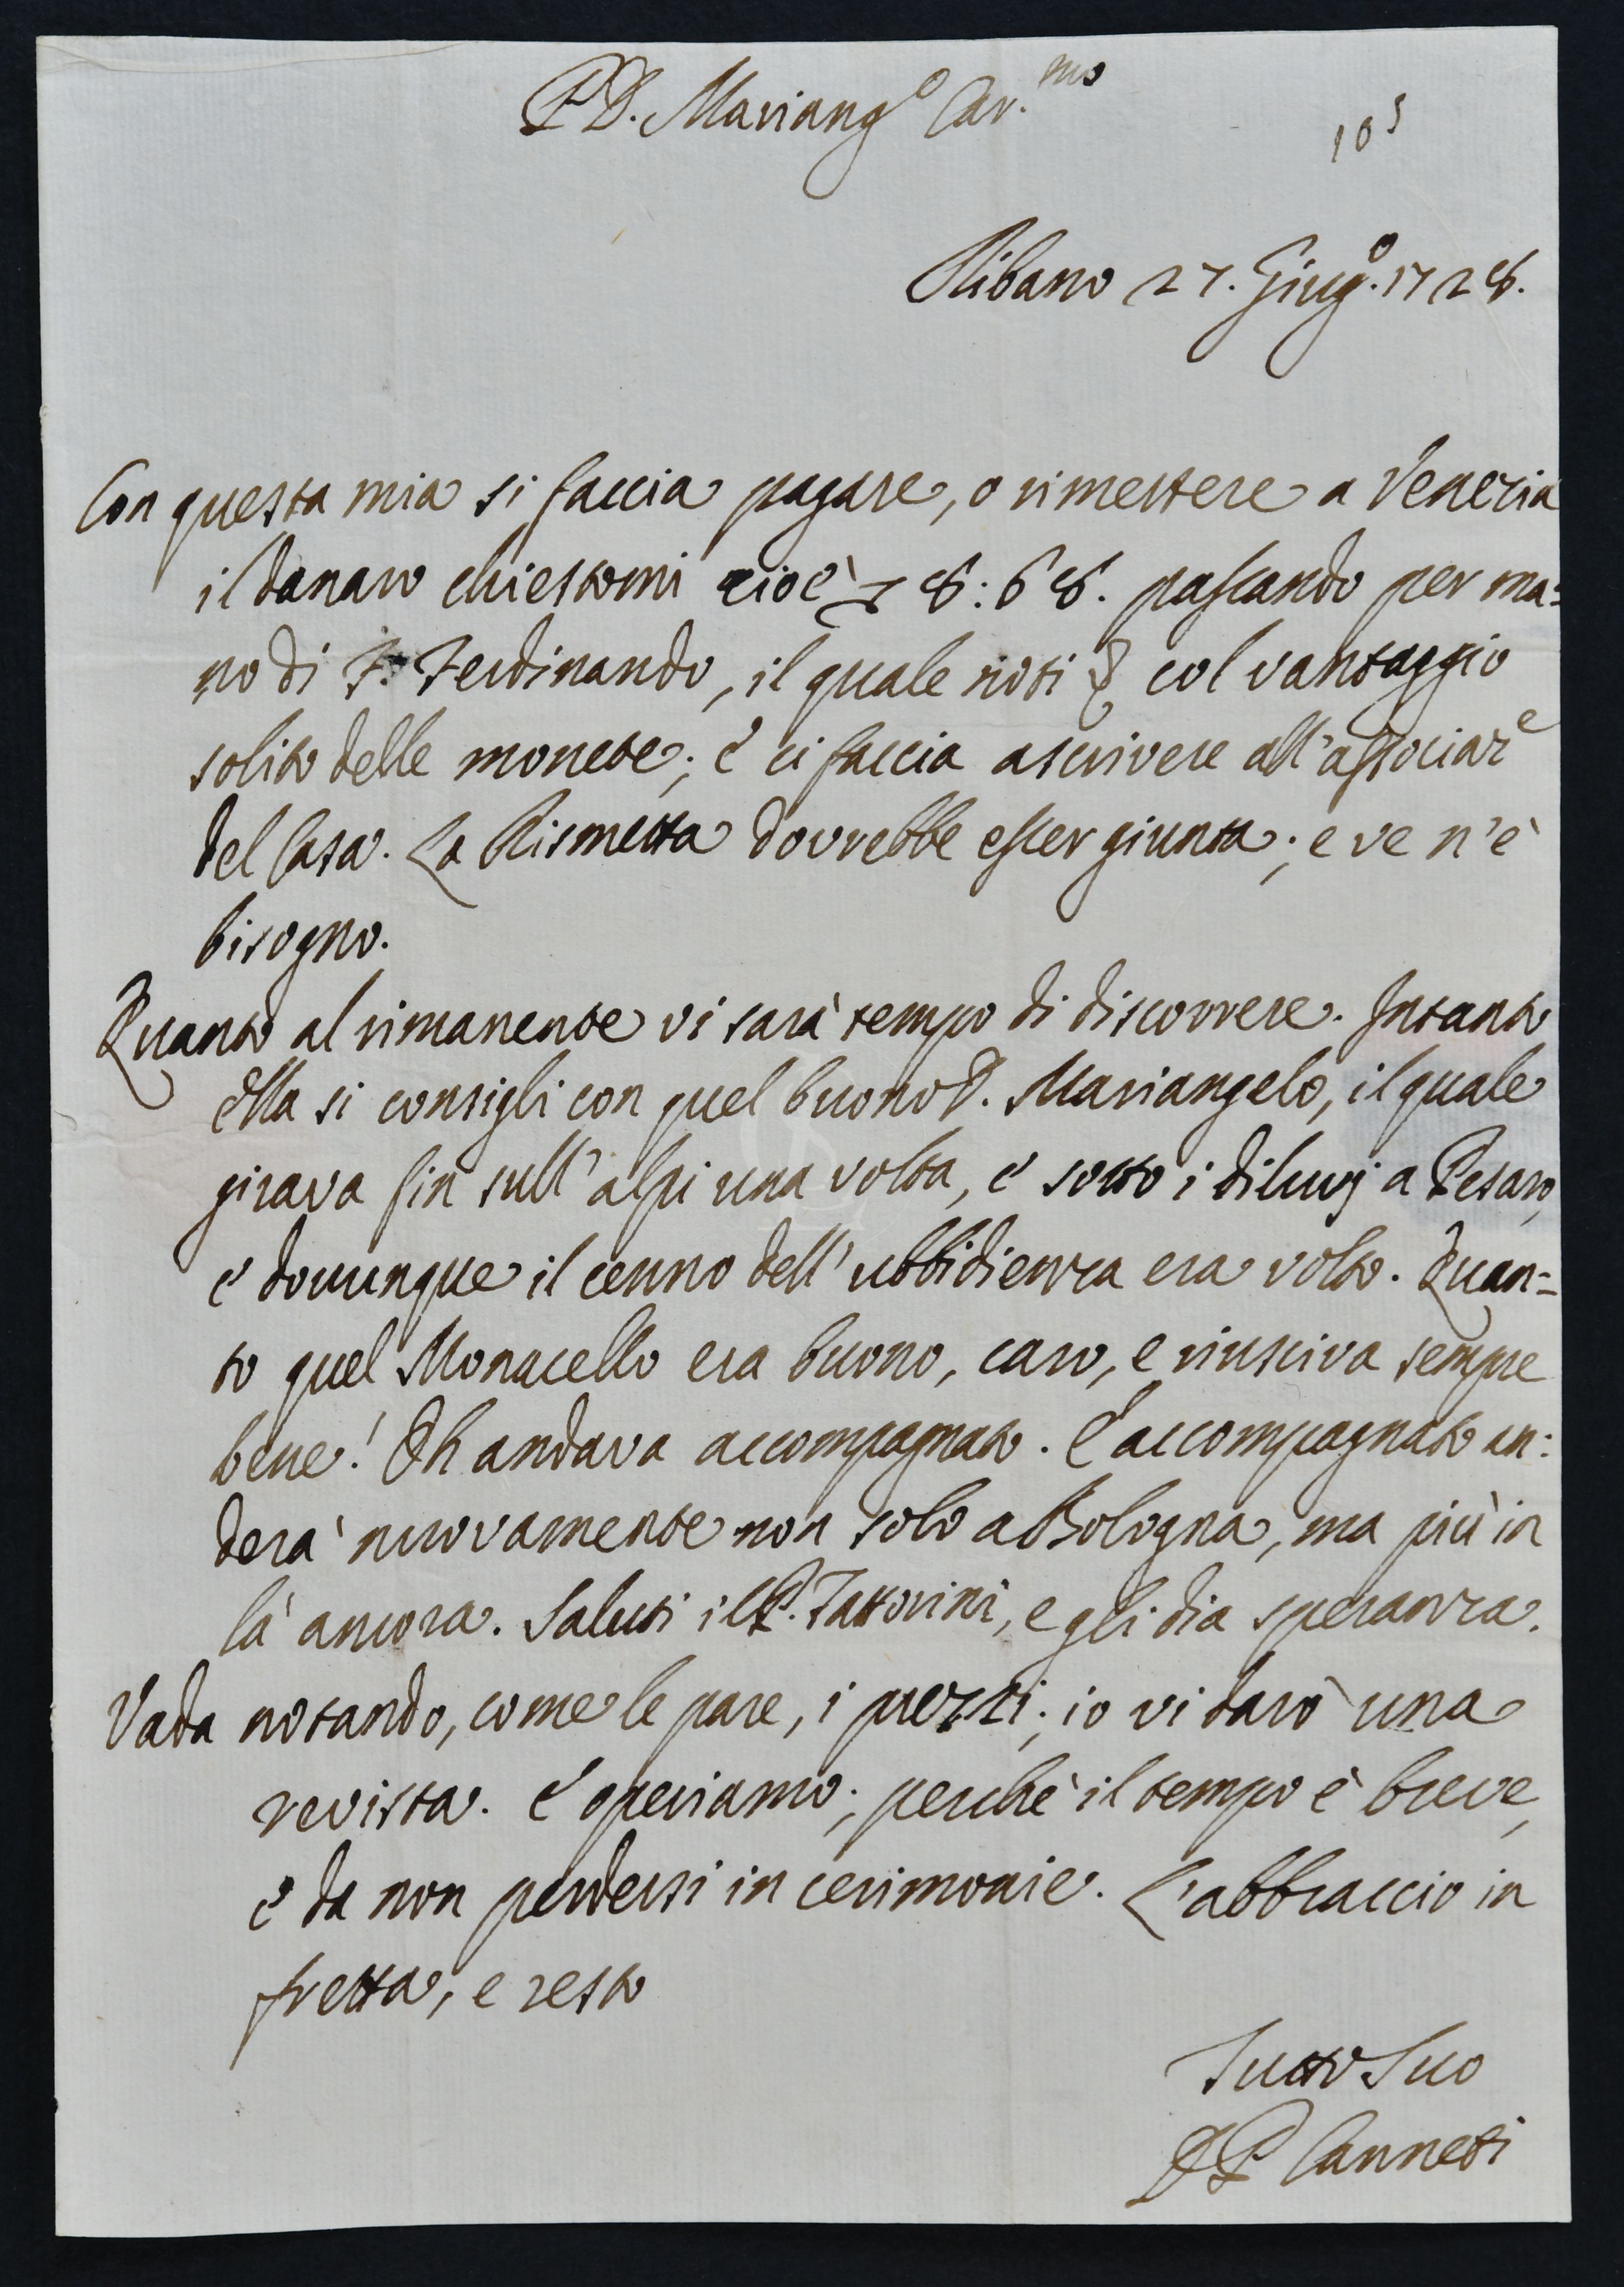 P. D. Mariang.º Car.mo
105
Ribano 27. Giug.º 1728.
Con questa mia si faccia pagare, o rimettere a Venezia
il danaro chiestomi cioè 8:68. passando per ma=
no di F. Ferdinando, il quale noti col vantaggio
solito delle monete; e ci faccia ascrivere all'associar.e
del Casa. La Rismetta dovrebbe esser giunta; e ve n'è
bisogno.
Quanto al rimanente vi sarà tempo di discorrere. Intanto
ella si consigli con quel buono D. Mariangelo, il quale
girava fin sull'alpi una volta, e sotto i diluvj a Pesaro,
e dovunque il cenno dell'ubbidienza era volto. Quan=
to quel Monacello era buono, caro, e riusciva sempre
bene! Oh andava accompagnato. E accompagnato an:
derà nuovamente non solo a Bologna, ma più in
là ancora. Saluti il P. Fattorini, e gli dia speranza.
Vada notando, come le pare, i prezzi; io vi darò una
revista. E operiamo; perchè il tempo è breve,
e da non perdersi in cerimonie. L'abbraccio in
fretta, e resto
Tutto Suo
D P Canneti